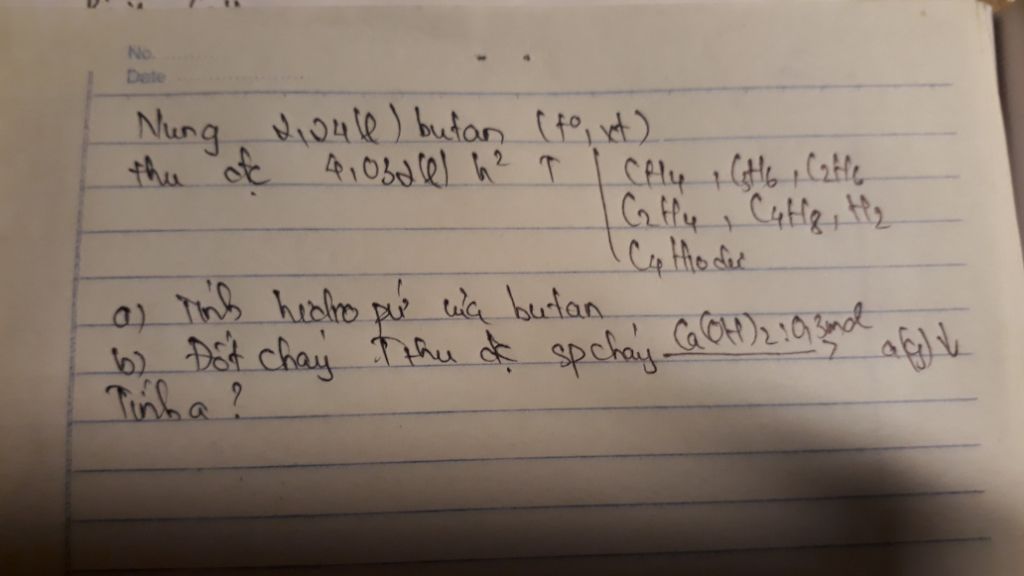 No.
Date
Nung 2,24(l) butan (t°, xt)
thu đc 4,032(l) h² ↑ | CH4, C3H6, C2H6
C2H4, C4H8, H2
C4H10 dư
a) Tính hidro pứ của butan
b) Đốt cháy T thu đc sp cháy Ca(OH)2: 0,3mol → a(g)↓
Tính a?